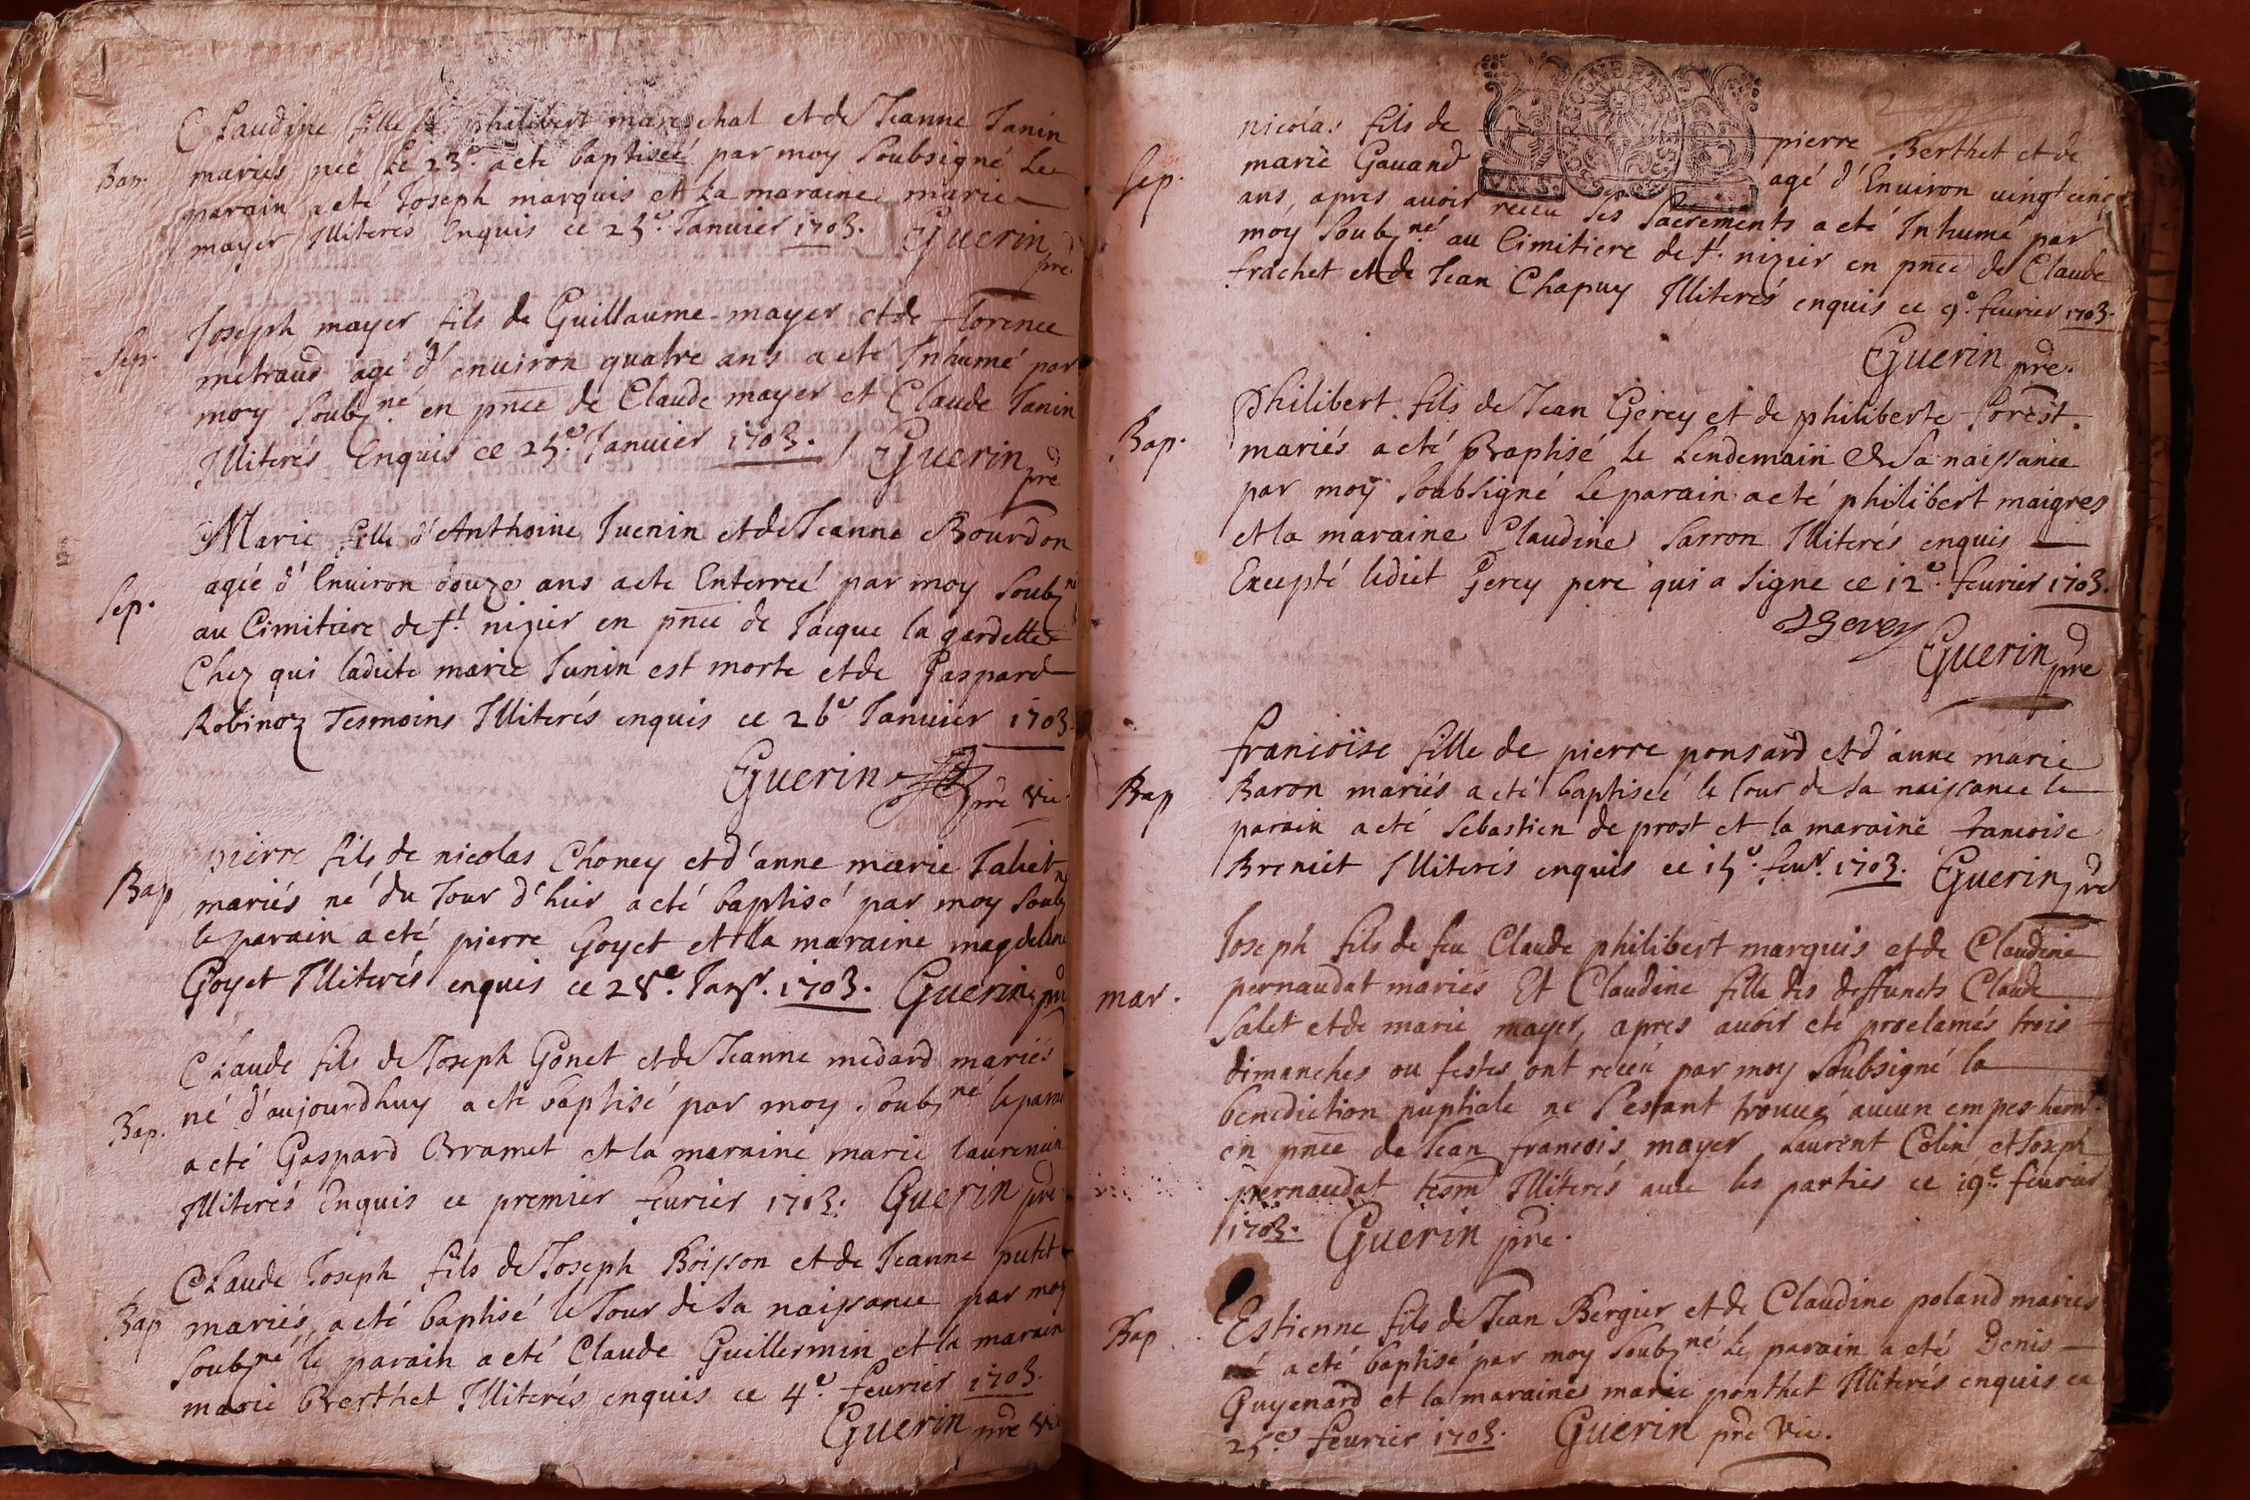 Claudine fille de philibert mareschal et de Jeanne Janin
Bap. mariés née le 23e. a eté baptisée par moy Soubsigné Le
parain a eté Joseph marquis et La maraine marie
mayer Illiterés Enquis ce 25e. Janvier 1703. Guerin
pre.
Joseph mayer fils de Guillaume mayer et de florence
Sep. métraud agé d'environ quatre ans a eté Inhumé par
moy Soubzné en pnce de Claude mayer et Claude Janin
Illiterés Enquis ce 25e. Janvier 1703. Guerin
pre
Marie fille d'Anthoine Juenin et de Jeanne Bourdon
agée d'Environ douze ans a eté Enterreé par moy Soubzné
Sep. au Cimitiere de St. nizier en pnce de Jacque la gardette
Chez qui ladicte marie Junin est morte et de Gaspard
Robinoz Tesmoins Illiterés enquis ce 26e Janvier 1703.
Guerin pre vic.
pierre fils de nicolas Choney et d'anne marie Talict
Bap mariés né du Jour d'hier a eté baptisé par moy Soubzné
le parain a eté pierre Goyet et la maraine magdelene
Goyet Illiterés enquis ce 28e. Janr. 1703. Guerin pre
Claude fils de Joseph Gonet et de Jeanne medard mariés
né d'aujourdhuy a eté baptisé par moy Soubzné le parain
Bap. a eté Gaspard Bramet et la maraine marie laurencin
Illiterés Enquis ce premier fevrier 1703. Guerin pre
Claude Joseph fils de Joseph Boisson et de Jeanne putit
Bap mariés, a eté baptisé le Jour de sa naissance par moy
Soubzné le parain a eté Claude Guillermin et la maraine
marie Berthet Illiterés enquis ce 4e. fevrier 1703.
Guerin pre vic
nicolas fils de pierre Berthet et de
Sep. marie Gavand agé d'Environ vingt cinq
ans, apres avoir receu ses Sacrements a eté Inhumé par
moy Soubzné au Cimitiere de St. nizier en pnce de Claude
frachet et de Jean Chapuy Illiterés enquis ce 9e. fevrier 1703.
Guerin pre.
Philibert fils de Jean Gerey et de philiberte forest
Bap. mariés a eté Baptisé le Lendemain de Sa naissance
par moy Soubsigné Le parain a eté philibert maigres
et la maraine Claudine Sarron Illiterés enquis
Excepté ledict Gerey pere qui a signe ce 12e. fevrier 1703.
JGerey
Guerin pre
francoise fille de pierre ponsard et d'anne marie
Bap Baron mariés a eté baptiseé le Jour de sa naissance le
parain a eté Sebastien de prost et la maraine francoise
Breniet Illiterés enquis ce 15e. fevr. 1703. Guerin pre
Joseph fils de feu Claude philibert marquis et de Claudine
mar. pernaudat mariés Et Claudine fille des deffunets Claude
Salet et de marie mayer, apres avoir eté proclamés trois
dimanches ou festes ont receu par moy Soubsigné la
benediction nuptiale ne Sestant trouvé aucun empeshemt.
en pnce de Jean francois mayer Laurent Colin et Joseph
pernaudat tesm Illiterés avec les parties ce 19e. fevrier
1703. Guerin pre.
Estienne fils de Jean Bergier et de Claudine poland mariés
Bap né a eté baptisé par moy Soubzné Le parain a eté Denis
Guyenard et la maraine marie ponthet Illiterés enquis ce
25e. fevrier 1703. Guerin pre Vic.